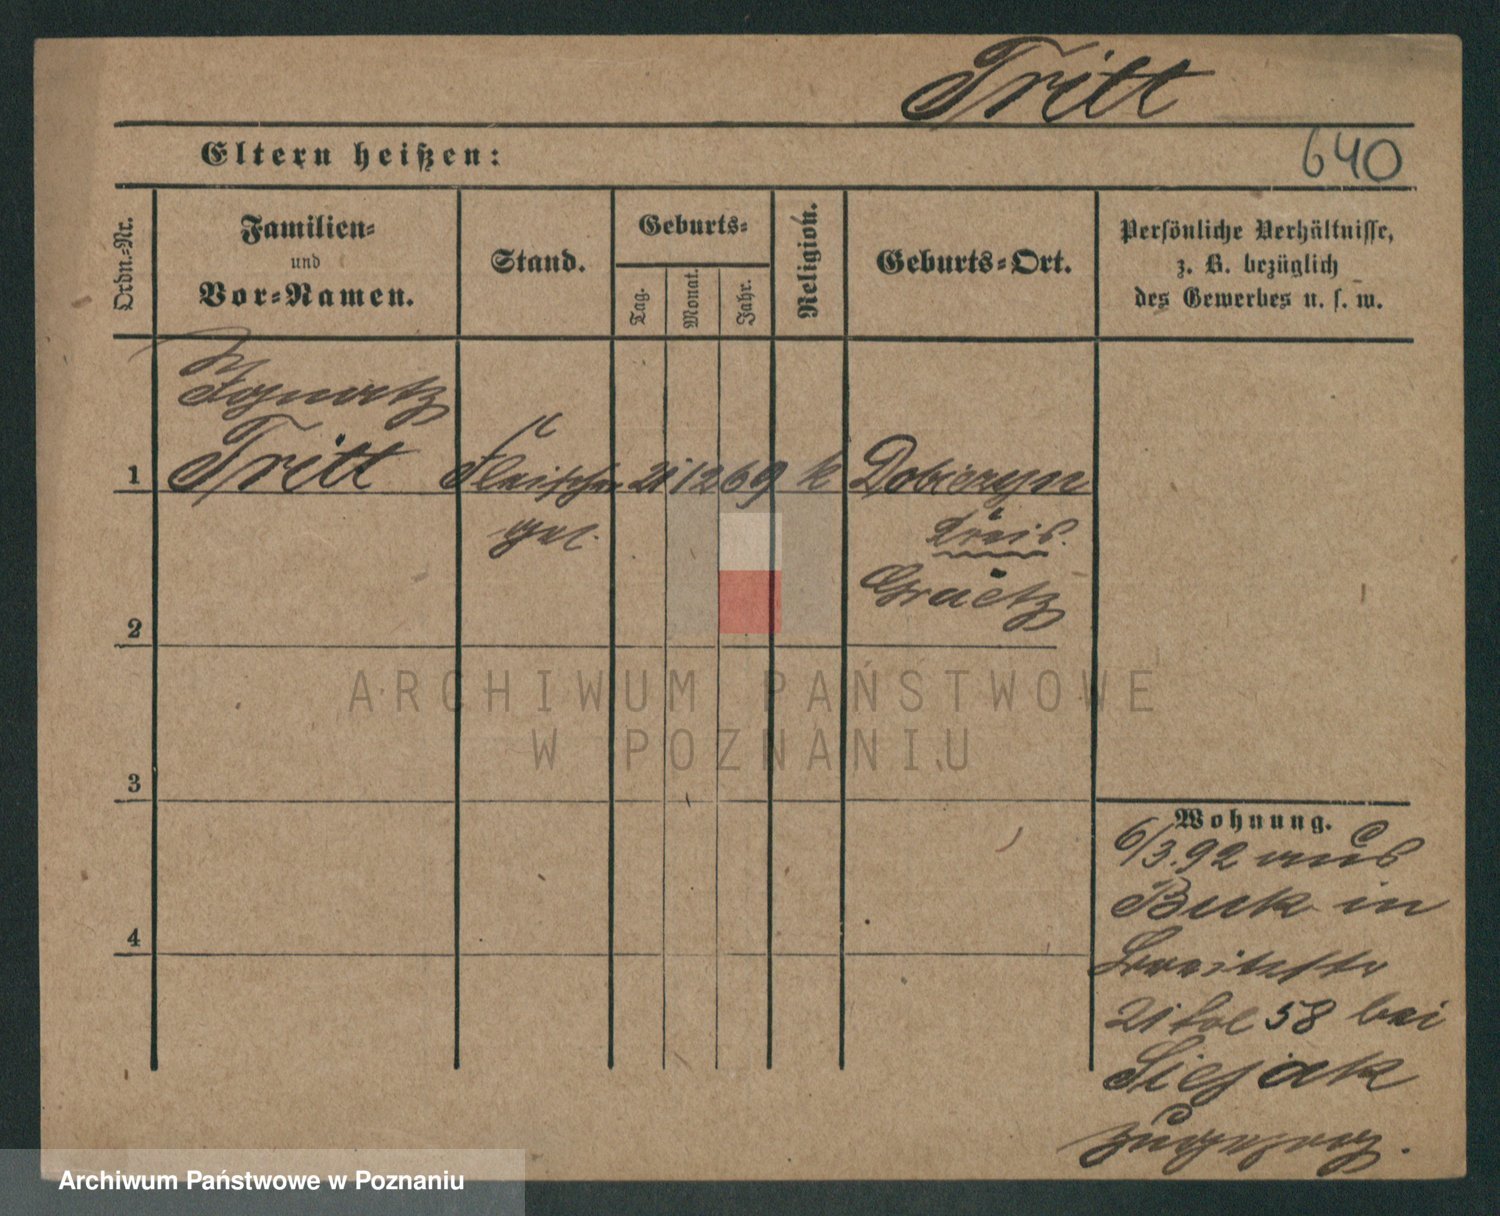 Tritt
Eltern heißen:
640
Ordn.-Nr.
Familien-
und
Vor-Namen.
Stand.
Geburts-
Tag.
Monat.
Jahr.
Religion.
Geburts-Ort.
Persönliche Verhältnisse,
z. B. bezüglich
des Gewerbes u. s. w.
Ignatz
1 Tritt Fleischer 21 12 69 k Dobiezyn
gel. Kreis.
Graetz
2
ARCHIWUM PAŃSTWOWE
W POZNANIU
3
Wohnung.
6/3.92 aus
Buk in
Breitestr
21 fol 58 bei
4
Archiwum Państwowe w Poznaniu